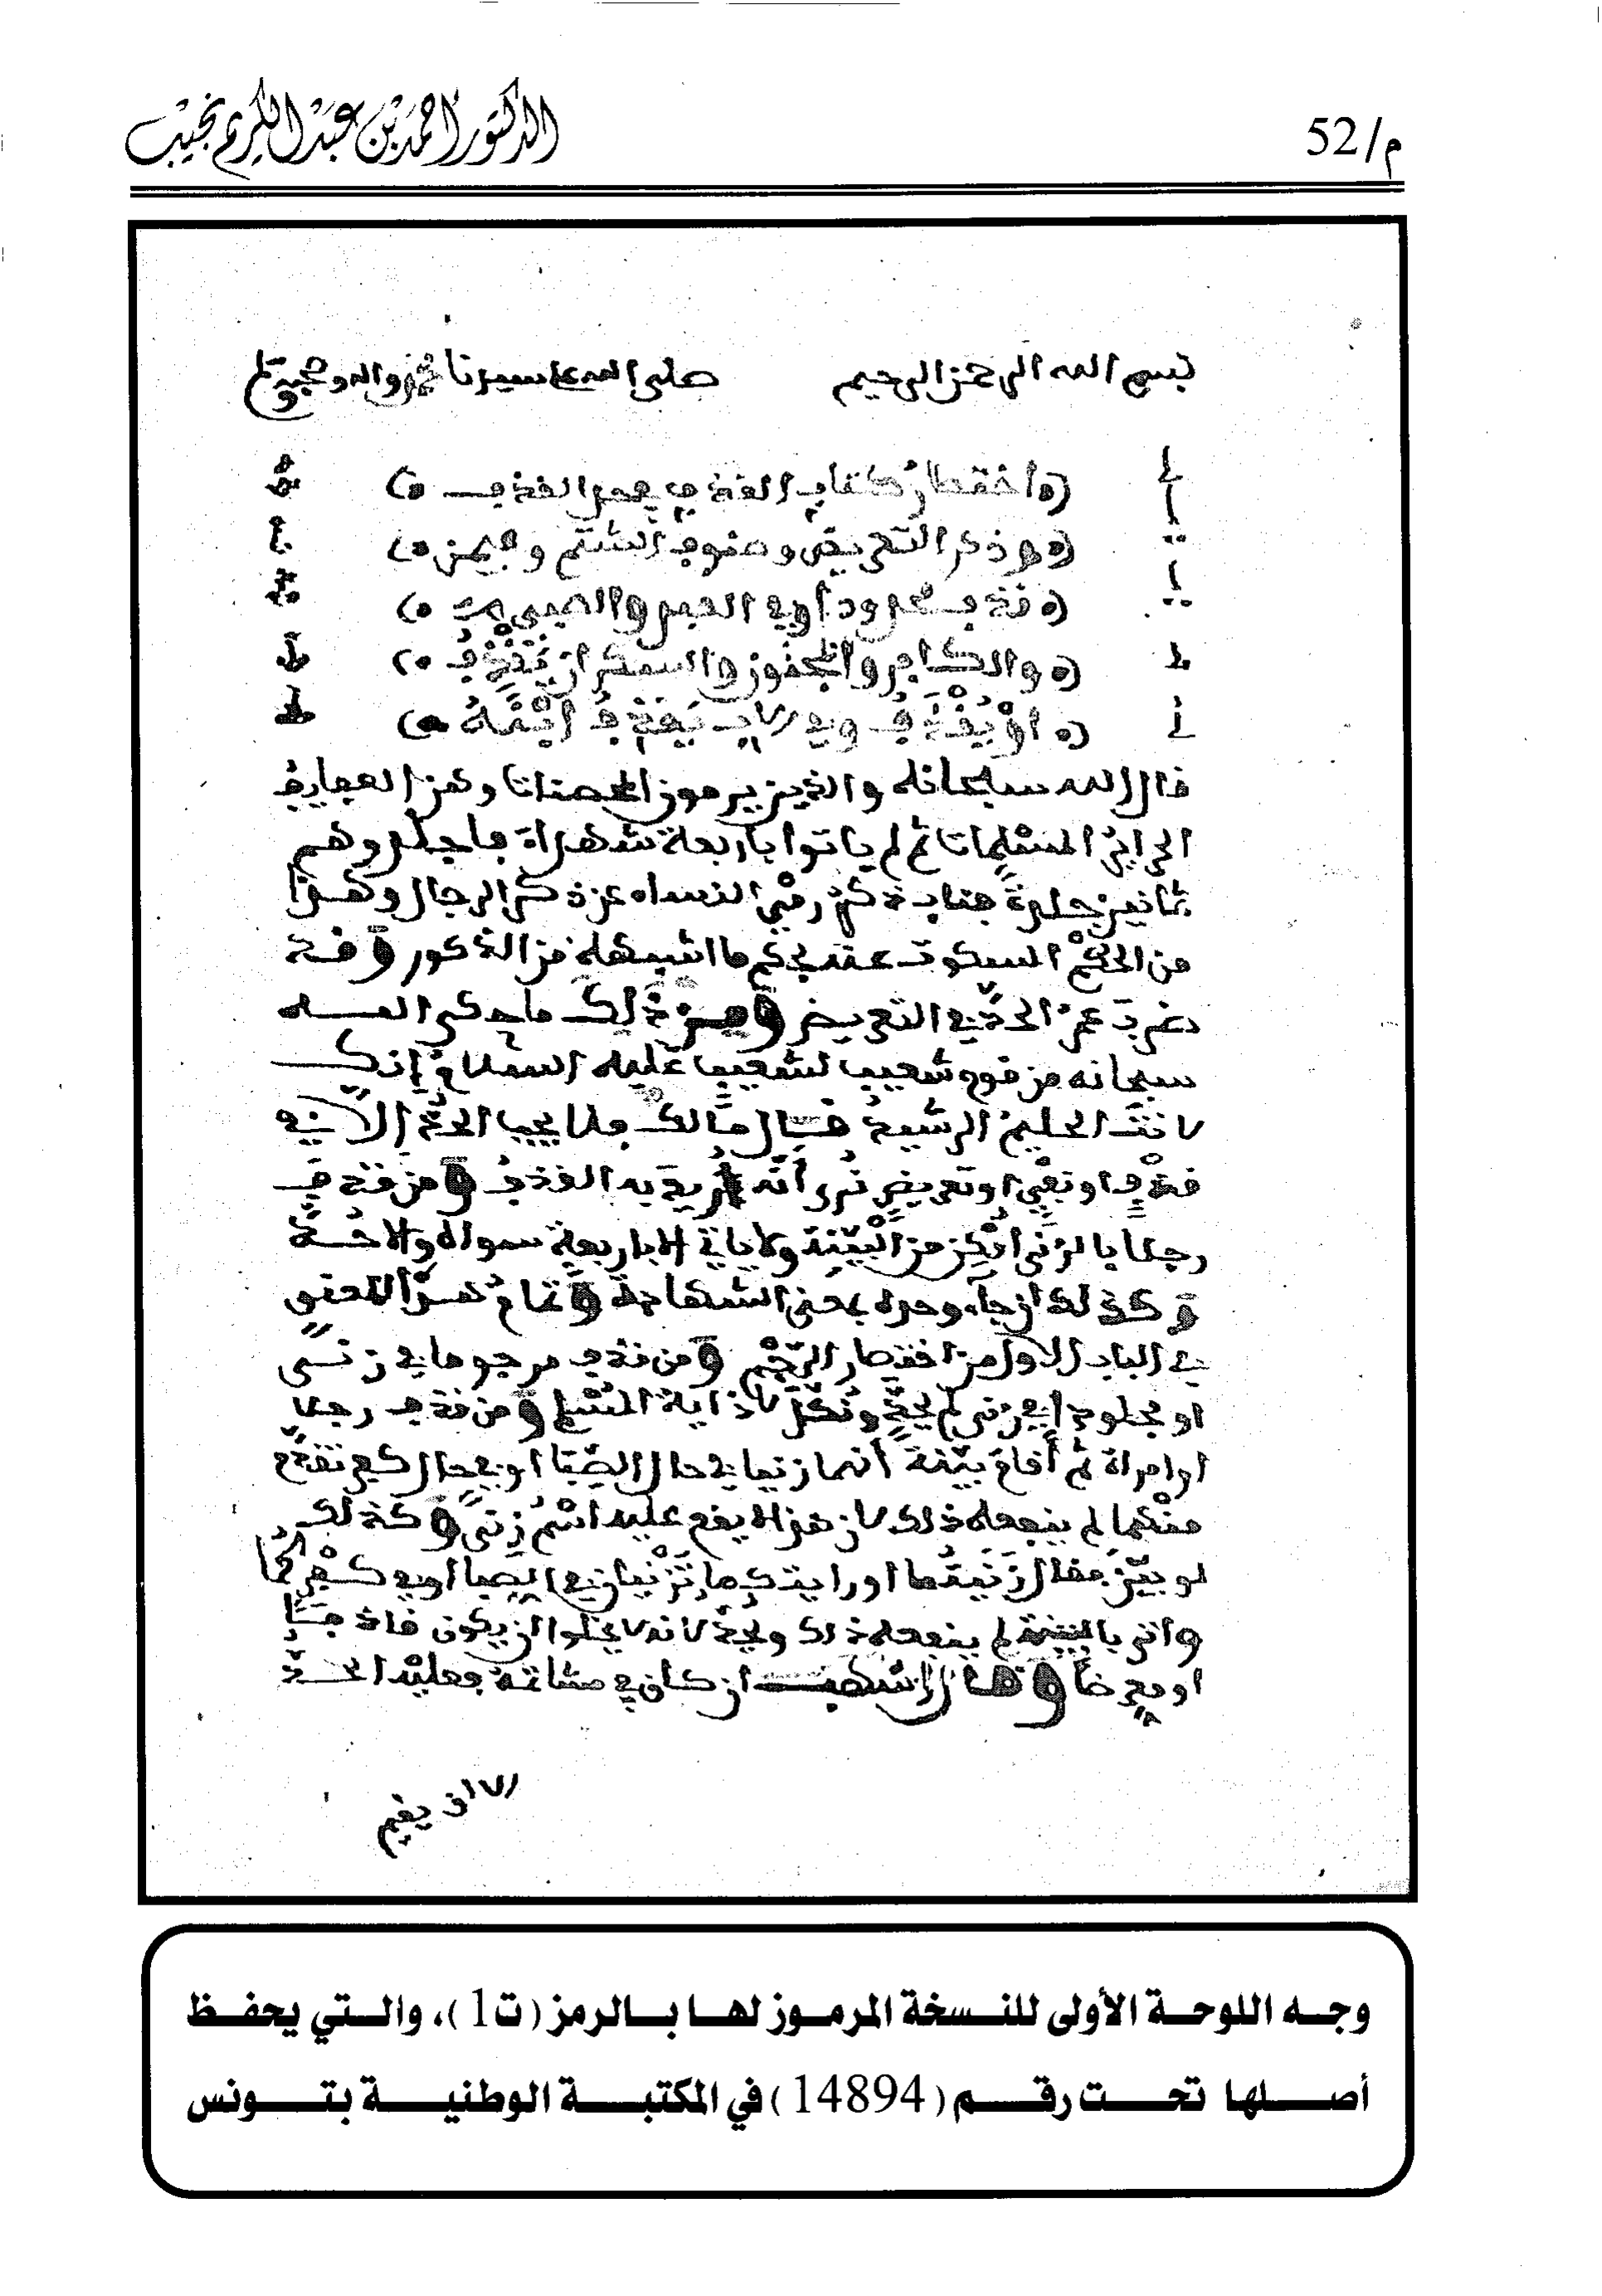 م/52
الدكتور أحمد بن عبد الكريم نجيب
بسم الله الرحمن الرحيم صلى الله على سيدنا محمد واله وصحبه وسلم
اختصار كتاب القذف فيمن القذف
وذكر التعريض وصنوف الشتم وفيمن
قذف محدودا وفي العبد والصبي
والكافر والمجنون والسكران يَقْذِفُ
اوْ يُقْذَفُ وفي الاب يقذف ابْنَهُ
قال الله سبحانه والذين يرمون المحصنات وهن العفايف
الحراير المسلمات ثم لم ياتوا باربعة شهداء فاجلدوهم
ثمانين جلدة فناب ذكر رمْي النساء عن ذكر الرجال وهذا
من الحكم المسكوت عنه يحكم ما اشبهه من المذكور وقد
ضرب عمر الحد في التعريض ومن ذلك ما حكى الله
سبحانه من قوم شعيب لشعيب عليه السلام إنك
لانت الحليم الرشيد قال مالك فلا يجب الحد إلا في
قذف او نفْي او تعريض نرى أنه اريد به القذف ومن قذف
رجلا بالزنى امْكن من البينة ولا ياتي الا باربعة سواه والا حد
وكذلك ان جاء وحده بمعنى الشهادة وتمام هذا المعنى
في الباب الاول من اختصار الرجم ومن قذف مرجوما في زنى
او مجلودا في زنى لم يحد ونكل لاذاية المسْلم ومن قذف رجلا
او امراة ثم أقام بينة أنهما زنيا في حال الصبا او في حال كفر تقدم
منهما لم ينفعه ذلك لان هذا لا يقع عليه اسْم زنى وكذلك
لو بين فقال زنيتما او رايتكما تزْنيان في الصبا او في كفركما
واتى بالبينة لم ينفعه ذلك ويحد لانه لا يخلوا ان يكون قاذفا
او معرضا وقال اشهب ان كان في مشاتمة فعليه الحد
وان لم يقم
وجه اللوحة الأولى للنسخة المرموز لها بالرمز (ت1)، والتي يحفظ
أصلها تحت رقم (14894) في المكتبة الوطنية بتونس